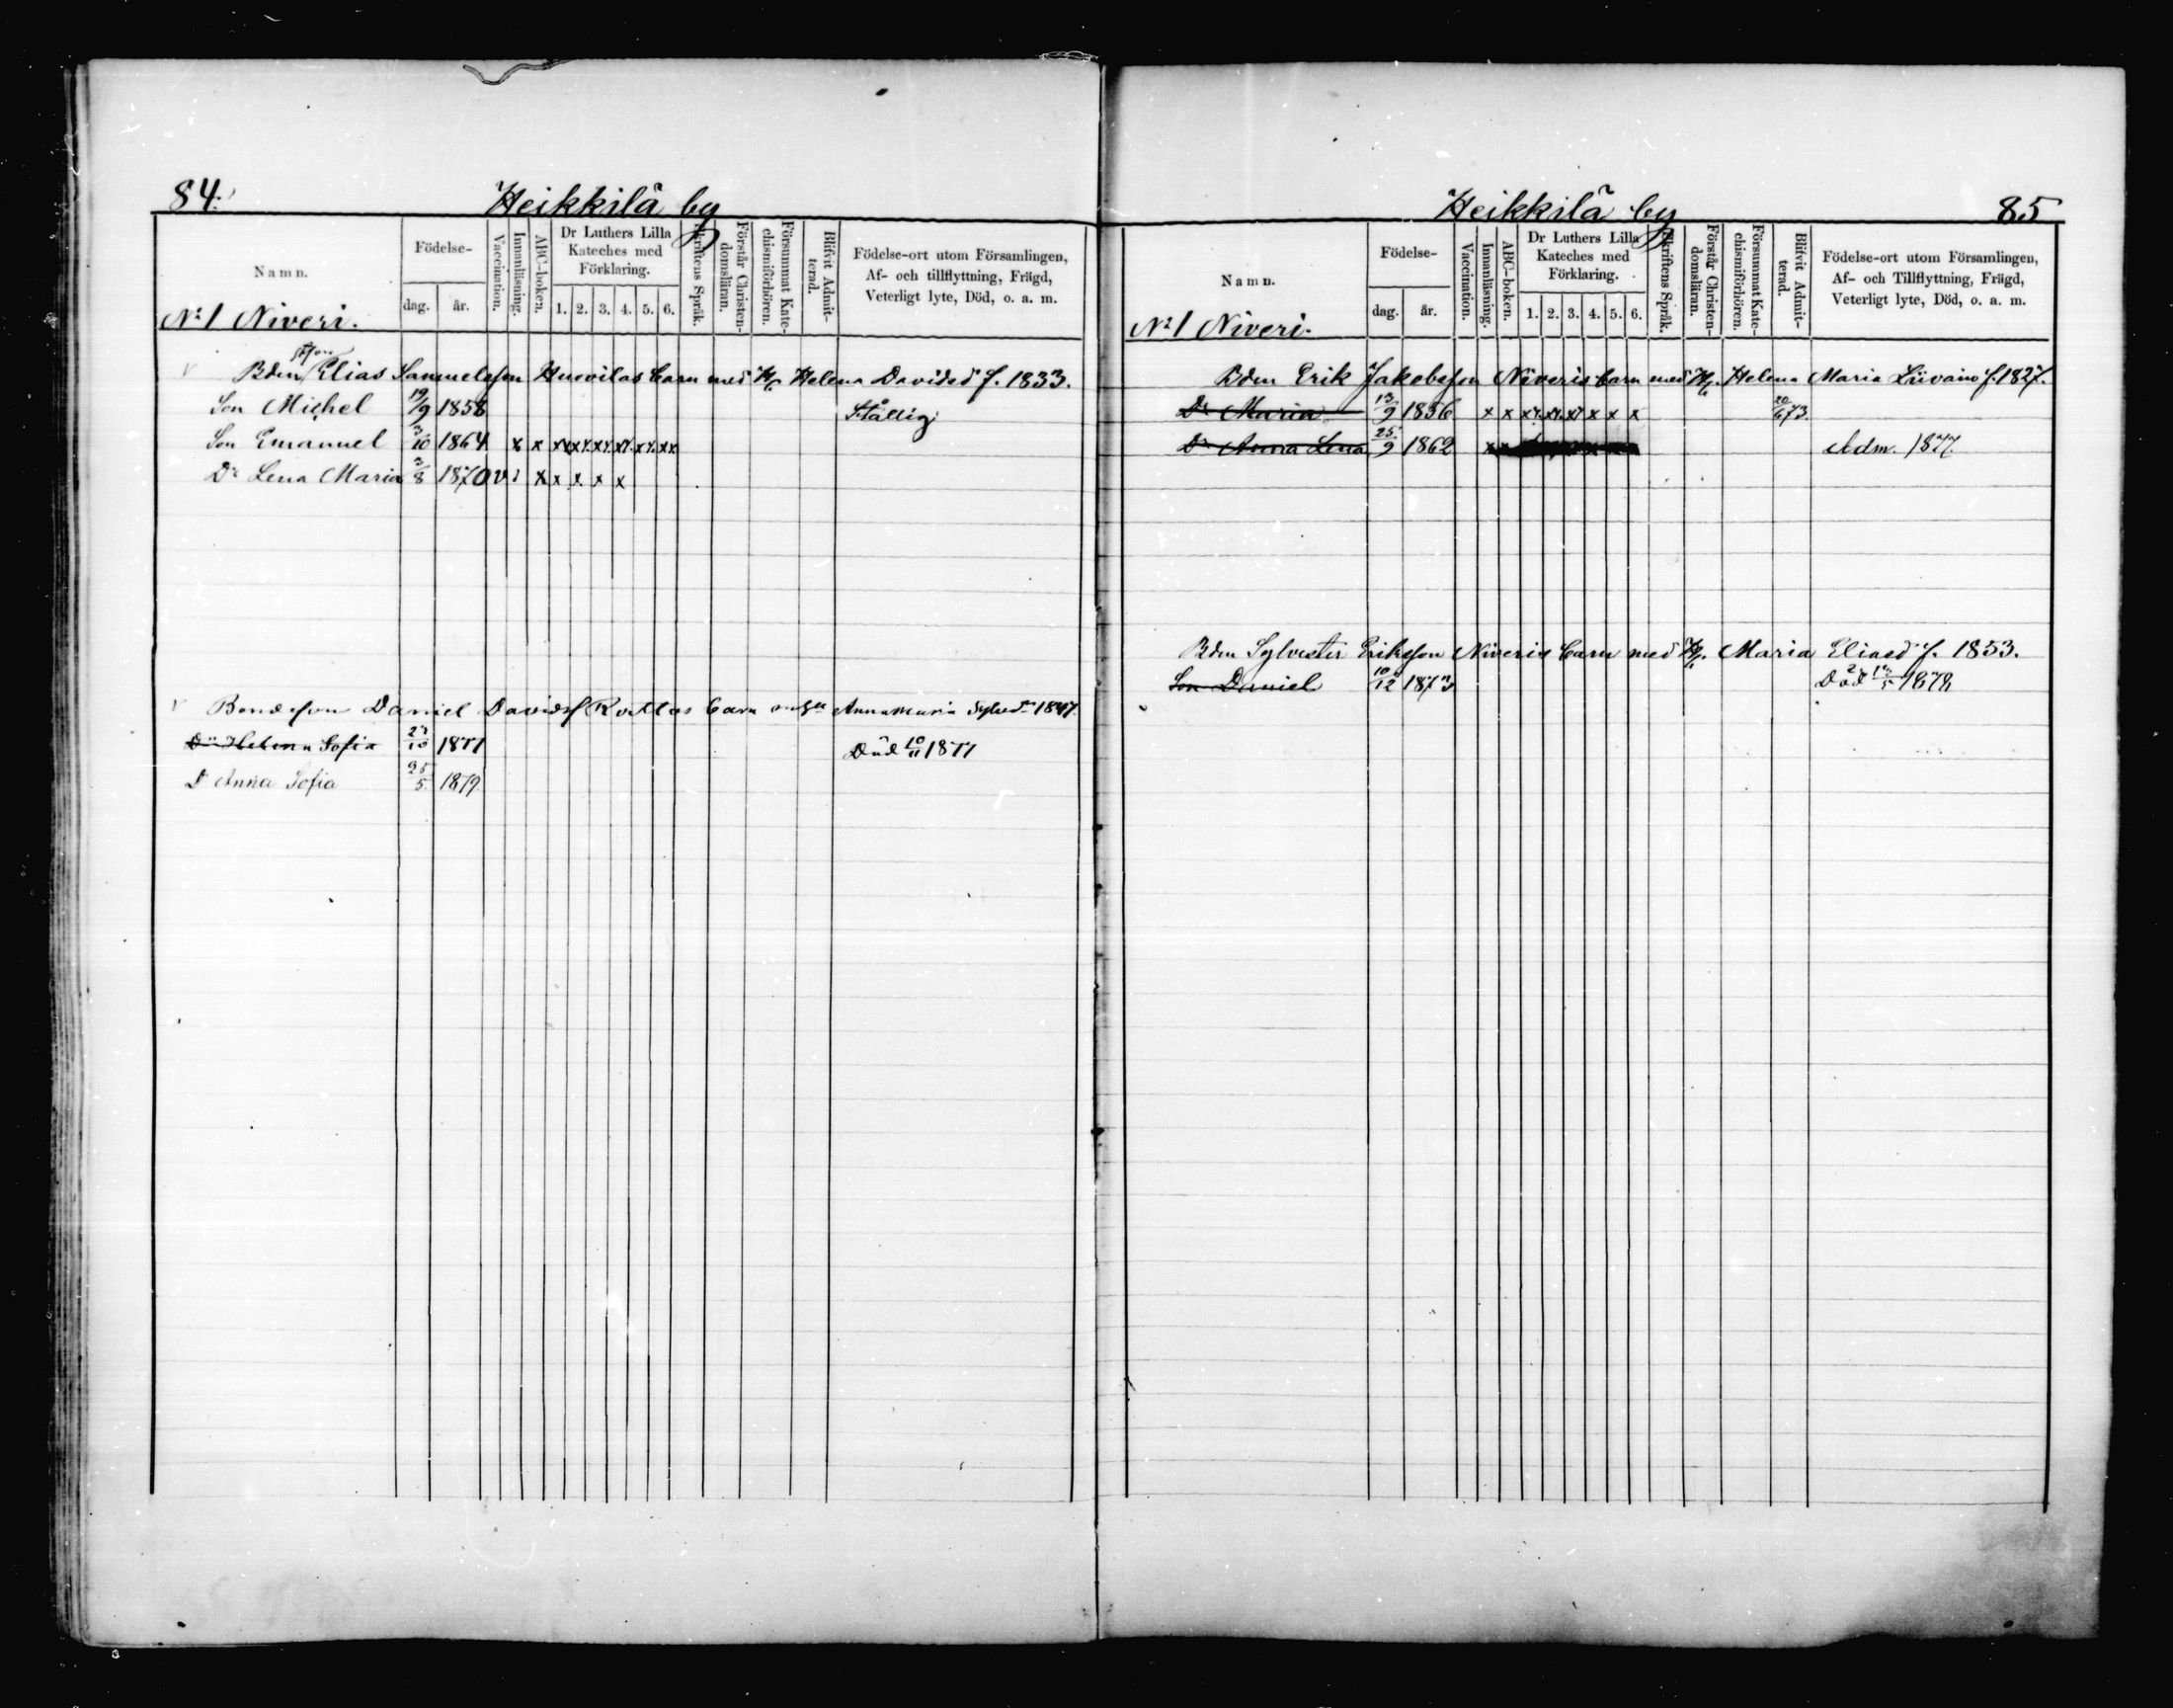 84.
Heikkilä by
Namn.
Födelse-
dag. år.
Vaccination.
Innanläsning.
ABC-boken.
Dr Luthers Lilla
Kateches med
Förklaring.
1. 2. 3. 4. 5. 6.
Skriftens Språk.
Förstår Christen-
domsläran.
Försummat Kate-
chismiförhören.
Blifvit Admit-
terad.
Födelse-ort utom Församlingen,
Af- och tillflyttning, Frägd,
Veterligt lyte, Död, o. a. m.
No 1 Niveri.
Bden Elias Samuelsson Huovilas barn med H. Helena Davidsd f. 1833.
Son Michel 19/9 1858
Son Emanuel 3/10 1864 x x
Dr Lena Maria 2/8 1870 v. x x x x x
Bondeson Daniel Davidsf barn Anna Maria 1847.
Dr Helena Sofia 23/10 1877 Död 10/11 1877
Dr Anna Sofia 25/5 1879.
Heikkilä by
85
Namn.
Födelse-
dag. år.
Vaccination.
Innanläsning.
ABC-boken.
Dr Luthers Lilla
Kateches med
Förklaring.
1. 2. 3. 4. 5. 6.
Skriftens Språk.
Förstår Christen-
domsläran.
Försummat Kate-
chismiförhören.
Blifvit Admit-
terad.
Födelse-ort utom Församlingen,
Af- och Tillflyttning, Frägd,
Veterligt lyte, Död, o. a. m.
No 1 Niveri.
Bden Erik Jakobsson Niveris barn med H. Helena Maria f. 1827.
Dr Maria 13/9 1856 x x x x x x x x 20/6 73.
Dr Anna Lena 25/9 1862 x Adm. 1877.
Bden Sylvester Eriksson Niveris barn med H. Maria Eliasd f. 1853.
Son Daniel 10/12 Död 1878